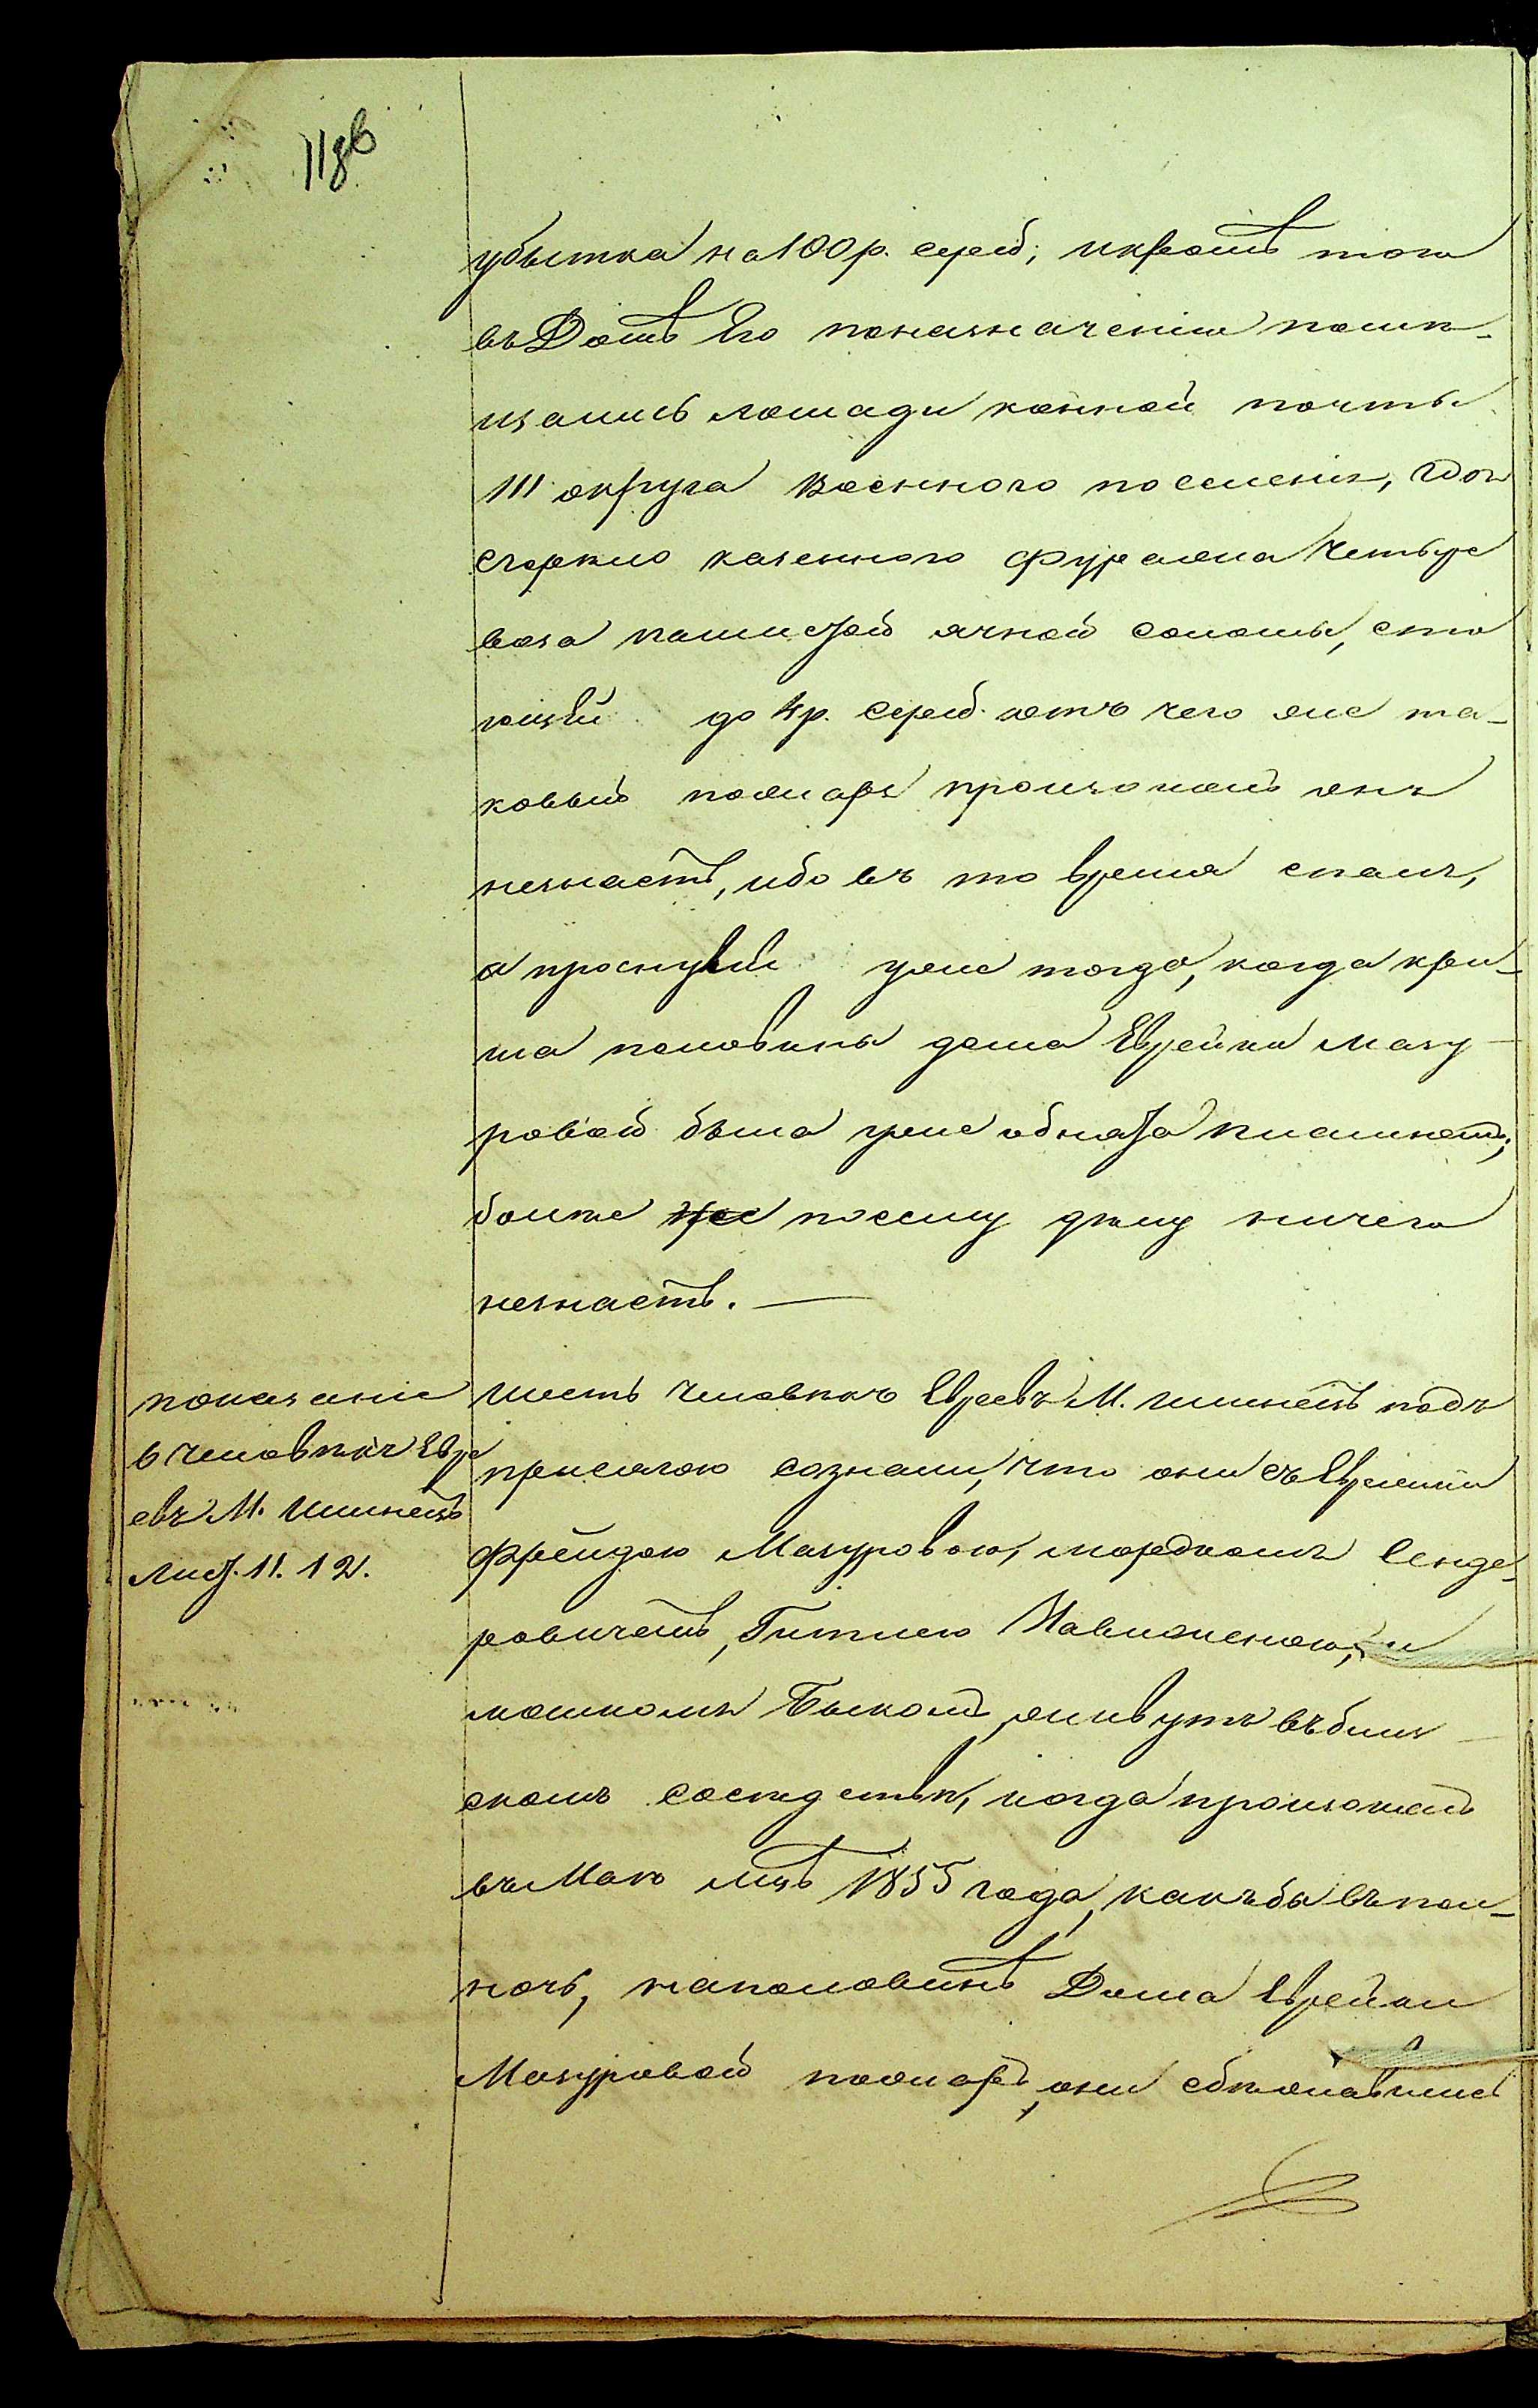 118в
убытка на 100 р. сереб; и кромѣ того
въ Домѣ Его по назначенію помѣ-
щались лошади конной почты
III округа Военного поселенія, гдѣ
сгорѣло казенного фуража четыре
воза паши стой ячной соломы, сто
ющей до 4 р. сереб. отъ чего же та-
ковый пожаръ произошелъ онъ
незнаетъ, ибо въ то время спалъ,
а проснувш уже тогда, когда кры-
ша половины дома Еврейки Мазу-
ровой была уже обнята пламнемъ;
болѣе по сему дѣлу ничего
незнаетъ. —
показаніе
6 человѣкъ Евре
евъ М. Шпинецъ
лист. 11. 12.
Шесть человѣкъ Евреевъ М. подъ
присягою сознали, что они съ Евреями
Фрейдою Мазуровою, Мордкомъ Сенде-
ровичемъ, Гитлею
Мошкомъ Быкомъ живутъ въ близ-
комъ сосѣдствѣ, когда произошелъ
въ Маѣ мцѣ 1855 года, какъ бы въ пол-
ночь, на половинѣ Дома Еврейки
Мазуровой пожаръ, они сбѣжавшись